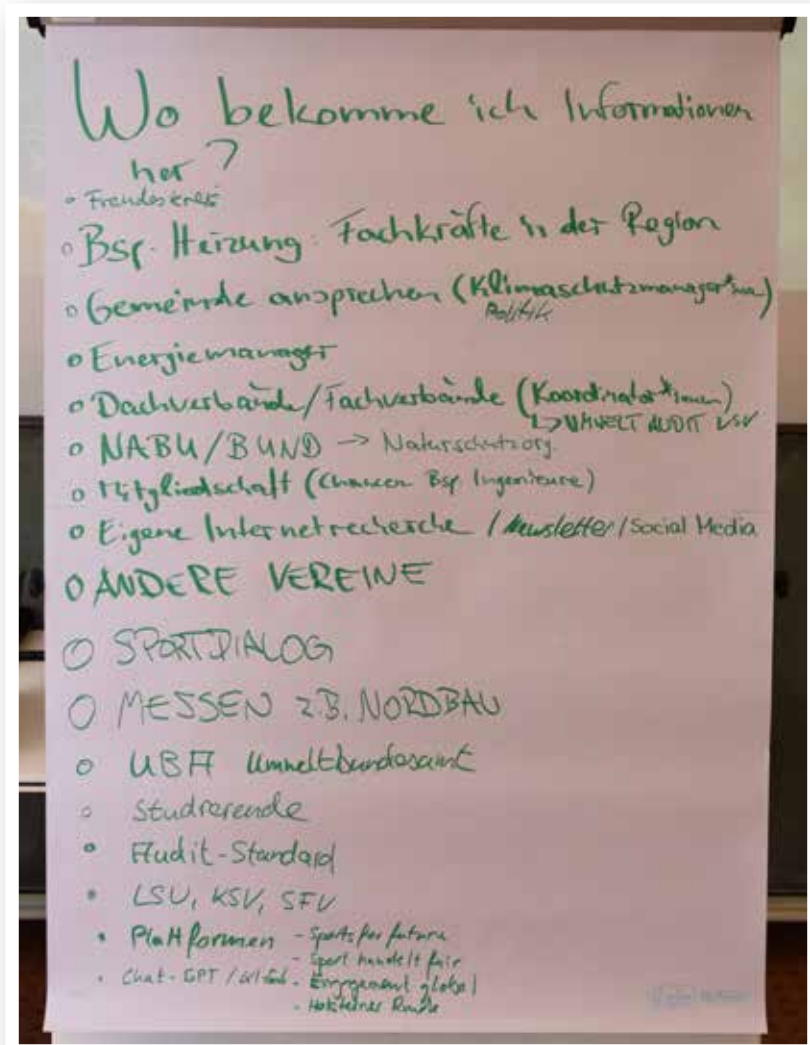 Wo bekomme ich Informationen
her?
o Freundeskreis
o Bsp. Heizung: Fachkräfte in der Region
o Gemeinde ansprechen (Klimaschutzmanager*innen)
Politik
o Energiemanager
o Dachverbände/Fachverbände (Koordinator*innen)
↳ UMWELT AUDIT LSV
o NABU/BUND → Naturschutzorg.
o Mitgliedschaft (Chancen Bsp. Ingenieure)
o Eigene Internetrecherche / Newsletter / Social Media
O ANDERE VEREINE
O SPORTDIALOG
O MESSEN z.B. NORDBAU
o UBA Umweltbundesamt
o Studierende
o Audit-Standard
• LSV, KSV, SFV
• Plattformen - Sports for future
- Sport handelt fair
• Chat-GPT / - Engagement global
- Holsteiner Runde